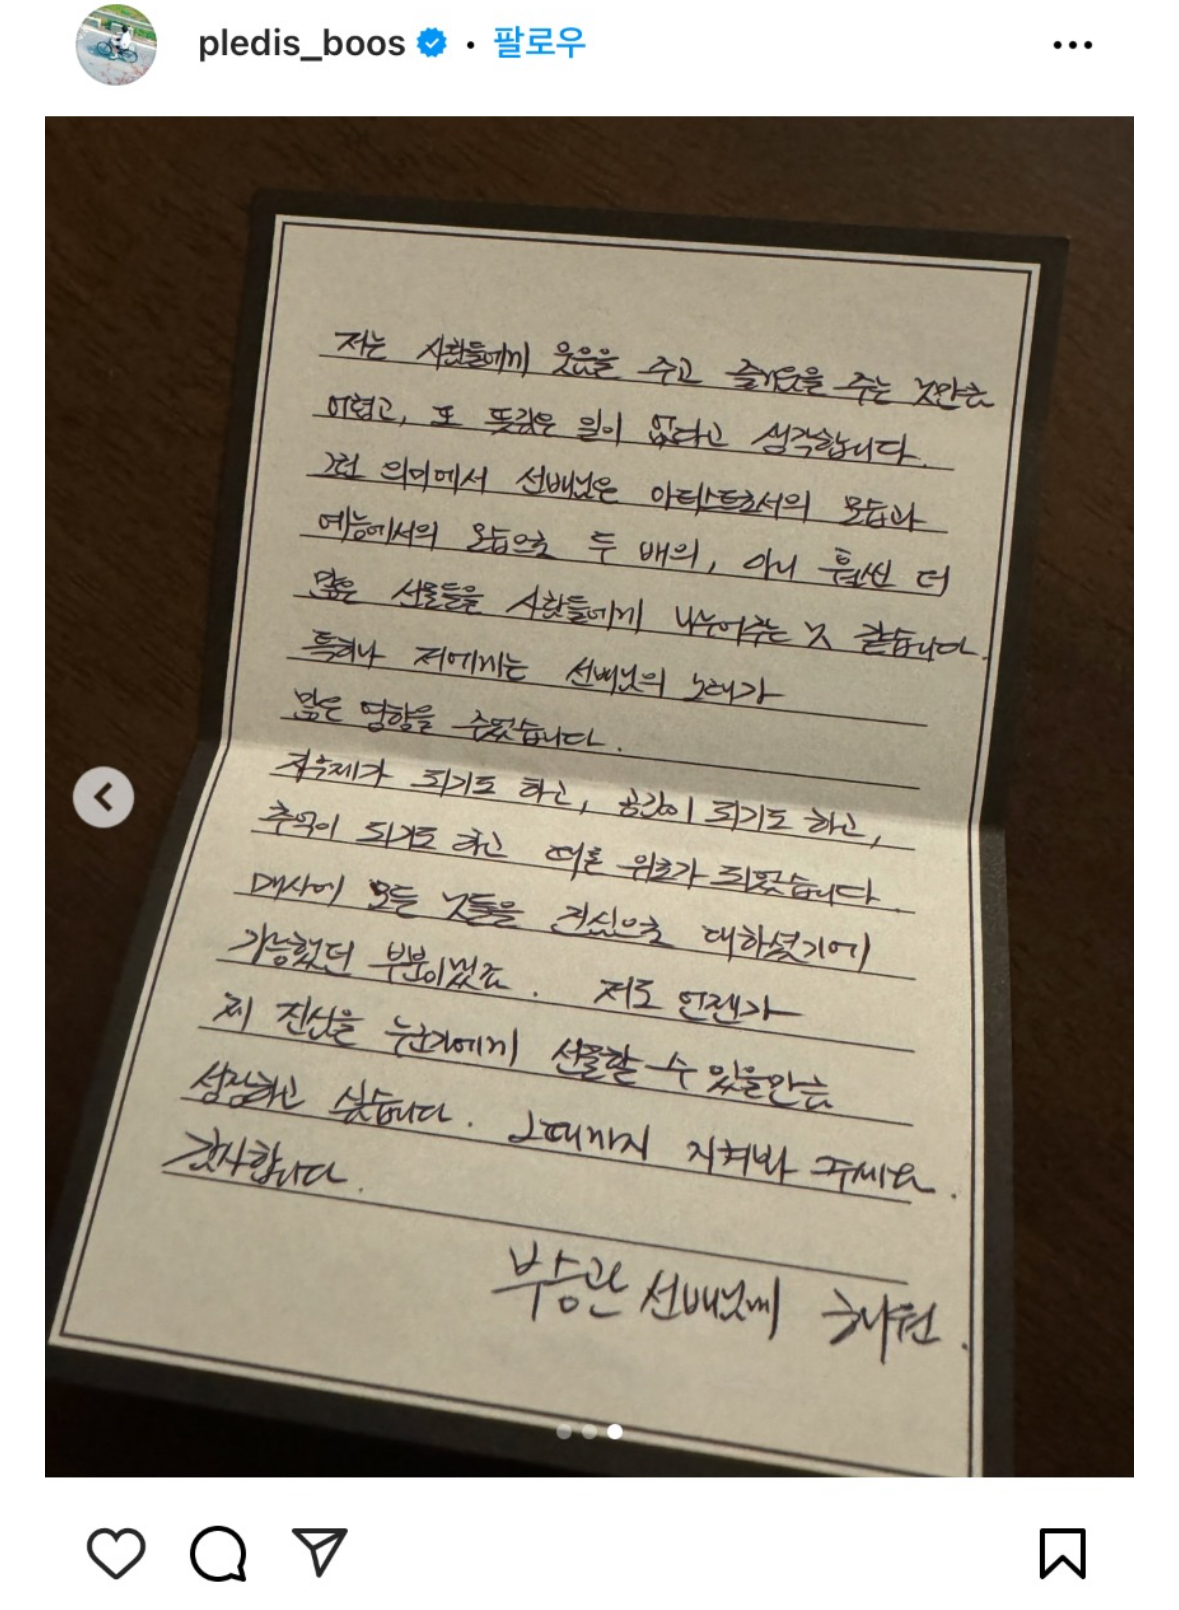 pledis_boos • 팔로우
저는 사람들에게 웃음을 주고 즐거움을 주는 것만큼
어렵고, 또 뜻깊은 일이 없다고 생각합니다.
그런 의미에서 선배님은 아티스트로서의 모습과
예능에서의 모습으로 두 배의, 아니 훨씬 더
많은 선물들을 사람들에게 나누어주는 것 같습니다.
특히나 저에게는 선배님의 노래가
많은 영향을 주었습니다.
자극제가 되기도 하고, 공감이 되기도 하고,
추억이 되기도 하고 때론 위로가 되었습니다.
매사에 모든 것들을 진심으로 대하셨기에
가능했던 부분이었죠. 저도 언젠가
제 진심을 누군가에게 선물할 수 있을만큼
성장하고 싶습니다. 그때까지 지켜봐 주세요.
감사합니다.
부승관 선배님께